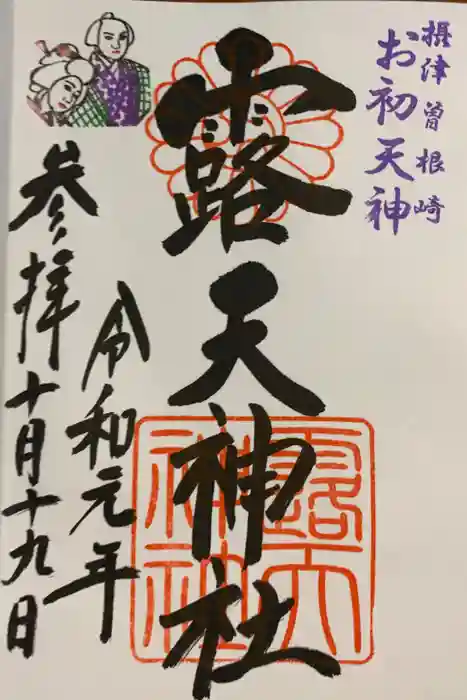 摂津曽根崎
お初天神
露天神社
令和元年
参拝十月十九日
露天
神社